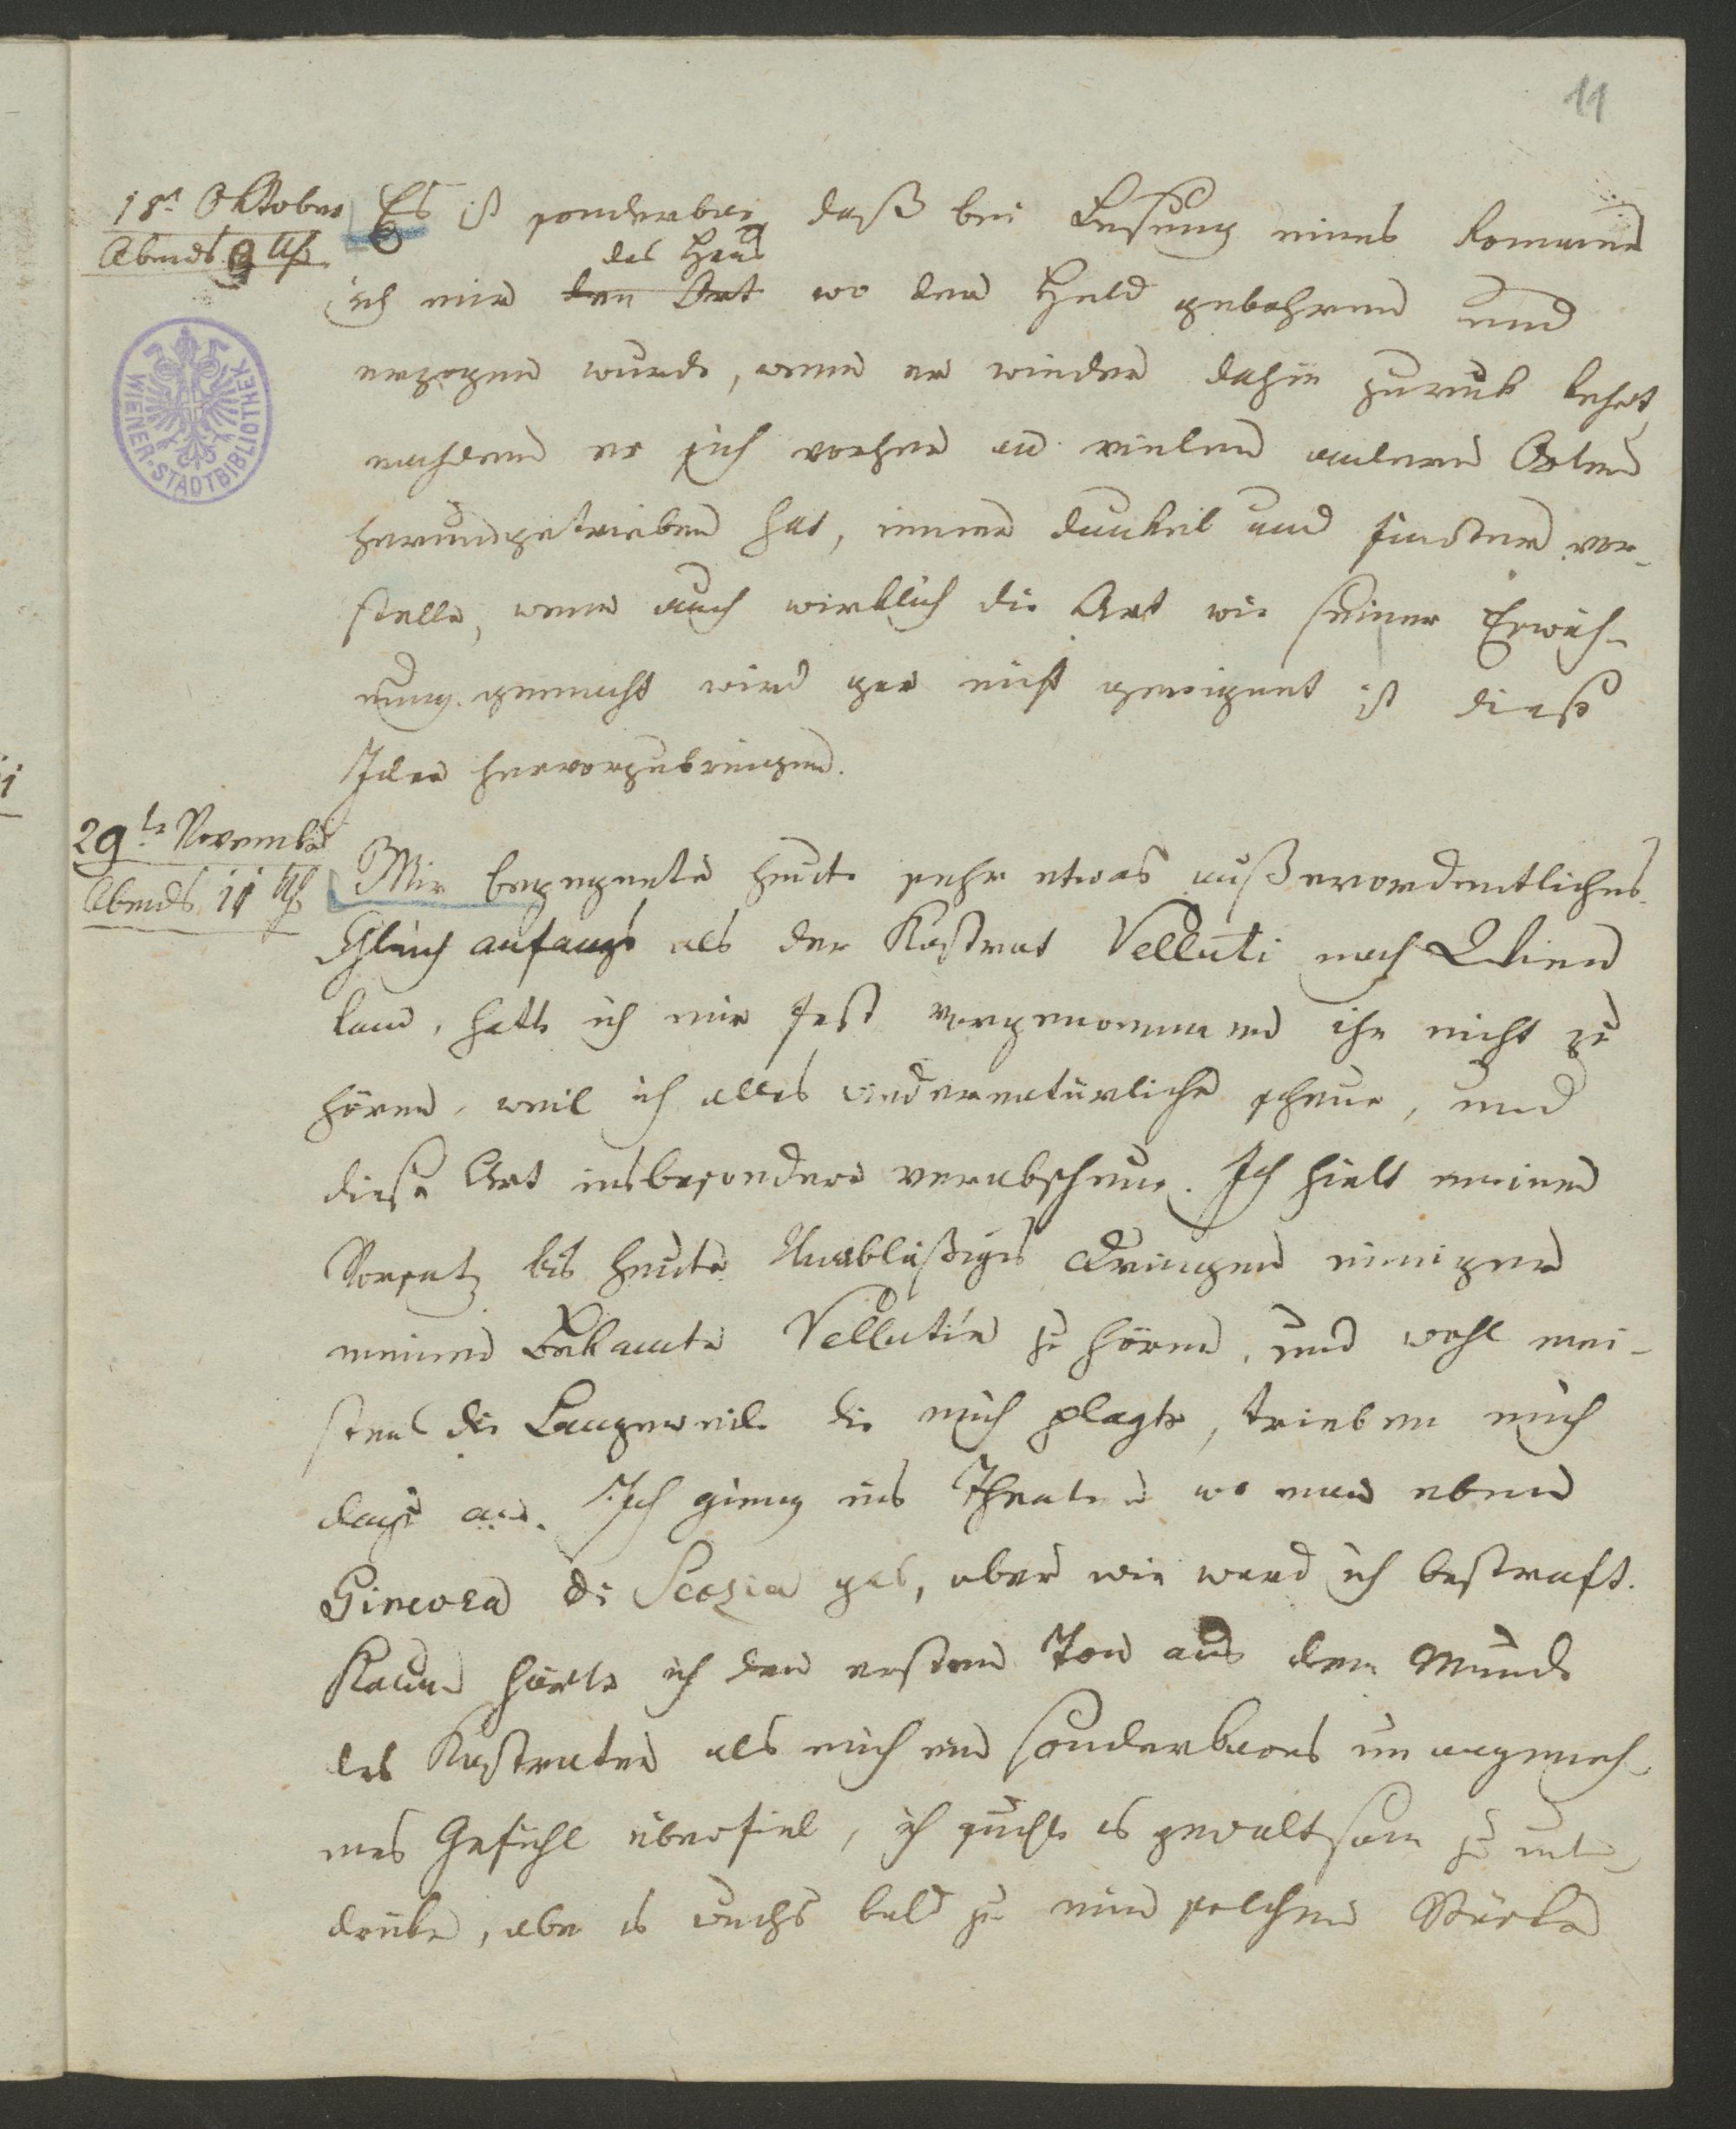 11
18t Oktober
Abends 9 Uhr
Es ist sonderbar daß bei Lesung eines Romans
das Haus
ich mir den Ort wo der Held gebohren und
erzogen wurde, wenn er wieder dahin zurük kehrt,
nachdem er sich vorher an vielen andern Orten
herumgetrieben hat, immer dunkel und finster vor-
stelle, wenn auch wirklich die Art wie seiner Erwäh-
nung gemacht wird gar nicht geeignet ist diese
Idee hervorzubringen.
29te November
Abends 11 Uhr
Mir begegnete heute sehr etwas außerordentliches.
Gleich anfangs als der Kastrat Velluti nach Wien
kam, hatte ich mir fest vorgenommen ihn nicht zu
hören, weil ich alles widernatürliche scheue, und
diese Art insbesondere verabscheue. Ich hielt meinen
Vorsatz bis heute. Unabläßiges Dringen einiger
meiner Bekannte Vellutin zu hören, und wohl mei-
stens die Langeweile die mich plagte, trieben mich
dazu an. Ich gieng ins Theater wo man eben
Ginevra di Scozia gab, aber wie ward ich bestraft.
Kaum hörte ich den ersten Ton aus dem Munde
des Kastraten als mich ein sonderbares unangeneh-
mes Gefühl überfiel, ich suchte es gewaltsam zu unter-
drüken, aber es wuchs bald zu einer solchen Stärke
WIENER-STADTBIBLIOTHEK